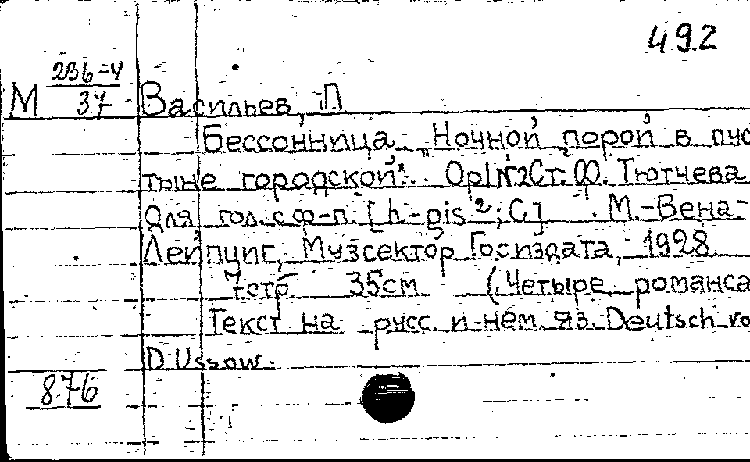 492
М 236-4/37 Васильев, П
Бессонница. „Ночной порой в пус
тыне городской". Op1№2 Ст. Ф. Тютчева
для гол. с ф-п. [h-gis²; C]. М.-Вена-
Лейпциг, Музсектор Госиздата, 1928
7стр 35см (Четыре романса
Текст на русс. и нем. яз. Deutsch vo
D Ussow.
876